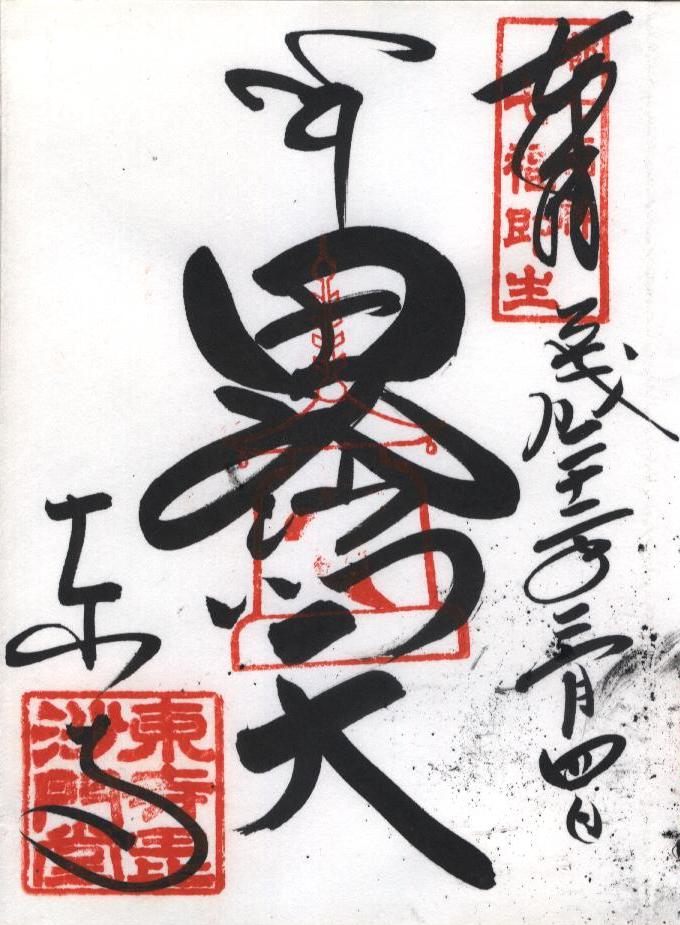 奉拝
七福即生
平成二十二年三月四日
毘沙門天
東寺
東寺毘
沙門堂